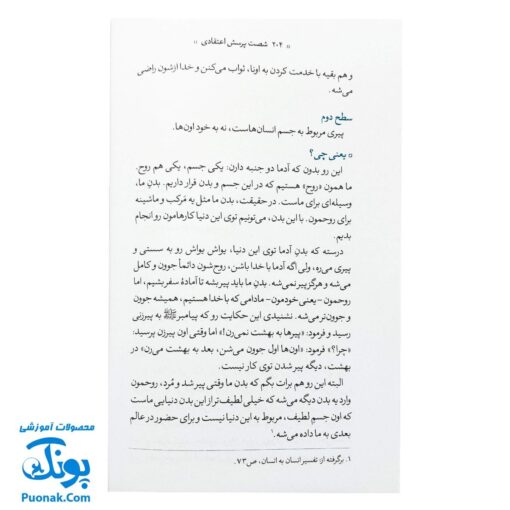 « ۲۰۴ شصت پرسش اعتقادی »
و هم بقیه با خدمت کردن به اونا، ثواب می‌کنن و خدا ازشون راضی
می‌شه.
سطح دوم
پیری مربوط به جسم انسان‌هاست، نه به خود اون‌ها.
یعنی چی؟
این رو بدون که آدما دو جنبه دارن: یکی جسم، یکی هم روح.
ما همون «روح» هستیم که در این جسم و بدن قرار داریم. بدنِ ما،
وسیله‌ای برای ماست. در حقیقت، بدن ما مثل یه مَرکب و ماشینه
برای روحمون. با این بدن، می‌تونیم توی این دنیا کارهامون رو انجام
بدیم.
درسته که بدنِ آدما توی این دنیا، یواش یواش رو به سستی و
پیری می‌ره، ولی اگه آدما با خدا باشن، روح‌شون دائماً جوون و کامل
می‌شه و هرگز پیر نمی‌شه. بدنِ ما باید پیر بشه تا آمادهٔ سفر بشیم، اما
روحمون -یعنی خودمون- مادامی که با خدا هستیم، همیشه جوون
و جوون‌تر می‌شه. نشنیدی این حکایت رو که پیامبر ﷺ به پیرزنی
رسید و فرمود: «پیرها به بهشت نمی‌رن!» اما وقتی اون پیرزن پرسید:
«چرا؟» فرمود: «اون‌ها اول جوون می‌شن، بعد به بهشت می‌رن» در
بهشت، دیگه پیر شدن توی کار نیست.
البته این رو هم برات بگم که بدن ما وقتی پیر شد و مُرد، روحمون
وارد یه بدن دیگه می‌شه که خیلی لطیف‌تر از این بدن دنیایی ماست
که اون جسمِ لطیف، مربوط به این دنیا نیست و برای حضور در عالم
بعدی به ما داده می‌شه.۱
۱. برگرفته از: تفسیر انسان به انسان، ص۷۳.
محصولات آموزشی
پونک
Puonak.Com